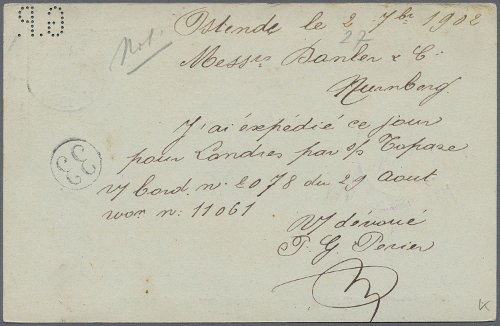 G.P.
Not.
Ostende le 2 7bre 1902
27
Messrs Danler & Cie
Nurnberg
J'ai expédié ce jour
pour Londres par s/s Topaze
V/ bord. n: 2078 du 29 Aout
won n: 11061
33
V/ dévoué
P. G. Perier
K